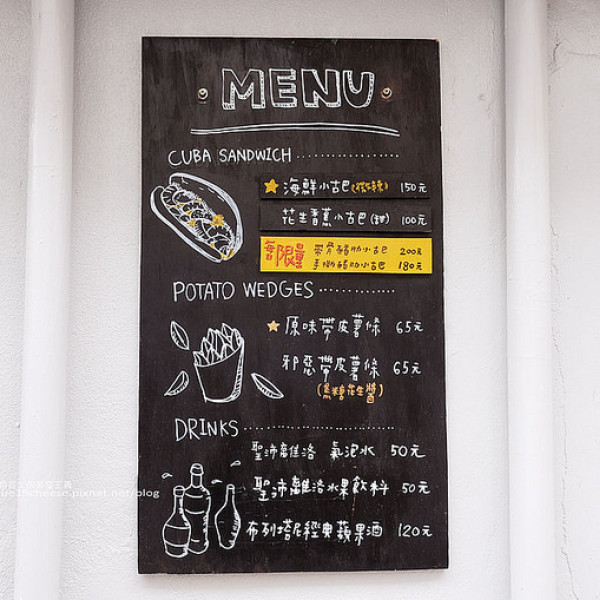 MENU
CUBA SANDWICH
海鮮小古巴(微辣) 150元
花生香蕉小古巴(甜) 100元
每日限量 帶骨豬肋小古巴 200元
手撕豬肋小古巴 180元
POTATO WEDGES
原味帶皮薯條 65元
邪惡帶皮薯條 65元
(焦糖花生醬)
DRINKS
聖沛離洛 氣泡水 50元
聖沛離洛水果飲料 50元
布列塔尼經典蘋果酒 120元
cheese.pixnet.net/blog